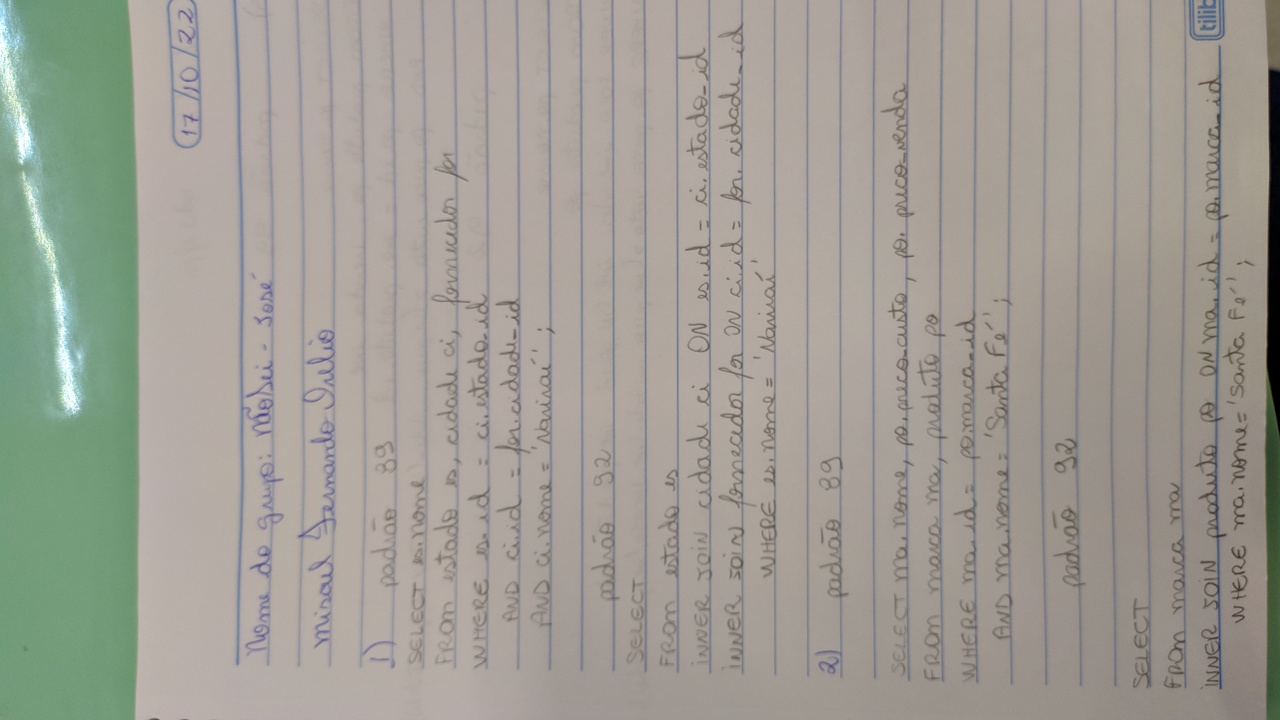 17/10/22
Nome do grupo: NãoSei - José
Misael Fernando Julio
1) padrão 89
SELECT es.nome
FROM estado es, cidade ci, fornecedor for
WHERE es.id = ci.estado_id
AND ci.id = for.cidade_id
AND ci.nome = 'Naviraí';
padrão 92
SELECT
FROM estado es
INNER JOIN cidade ci ON es.id = ci.estado_id
INNER JOIN fornecedor for ON ci.id = for.cidade_id
WHERE es.nome = 'Naviraí'
2) padrão 89
SELECT ma.nome, po.preco_custo, po.preco_venda
FROM marca ma, produto po
WHERE ma.id = po.marca_id
AND ma.nome = 'Santa Fé';
padrão 92
SELECT
FROM marca ma
INNER JOIN produto po ON ma.id = po.marca_id
tilib
WHERE ma.nome = 'Santa Fé';